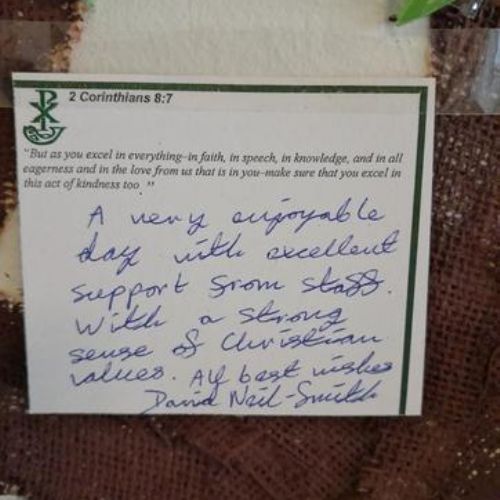 2 Corinthians 8:7
"But as you excel in everything–in faith, in speech, in knowledge, and in all
eagerness and in the love from us that is in you–make sure that you excel in
this act of kindness too."
A very enjoyable
day with excellent
support from staff.
With a strong
sense of Christian
values. All best wishes
David Neil-Smith